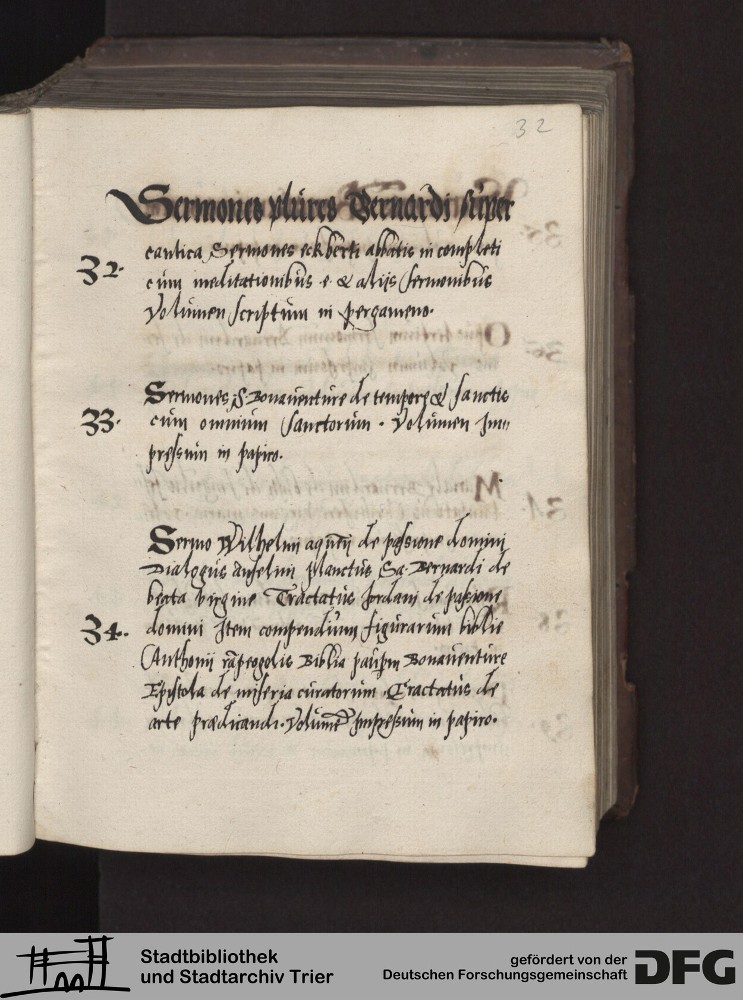 32
Sermones plures Bernardi super
32. cantica Sermones eckberti abbatis in completi
cum meditationibus e. & alijs sermonibus
volumen scriptum in pergameno.
33. Sermones S. Bonauenture de tempore & sanctis
cum omnium sanctorum. volumen Im„
pressum in papiro.
Sermo Wilhelmi de passione domini
Dialogus Anselmi planctus Sa. Bernardi de
beata virgine Tractatus Jordani de passione
34. domini Item compendium figurarum biblie
Anthonij rāpeogolis Biblia paupm Bonauenture
Epistola de miseria curatorum. Tractatus de
arte prædicandi. volumē Impressum in papiro.
Stadtbibliothek
und Stadtarchiv Trier
gefördert von der
Deutschen Forschungsgemeinschaft
DFG